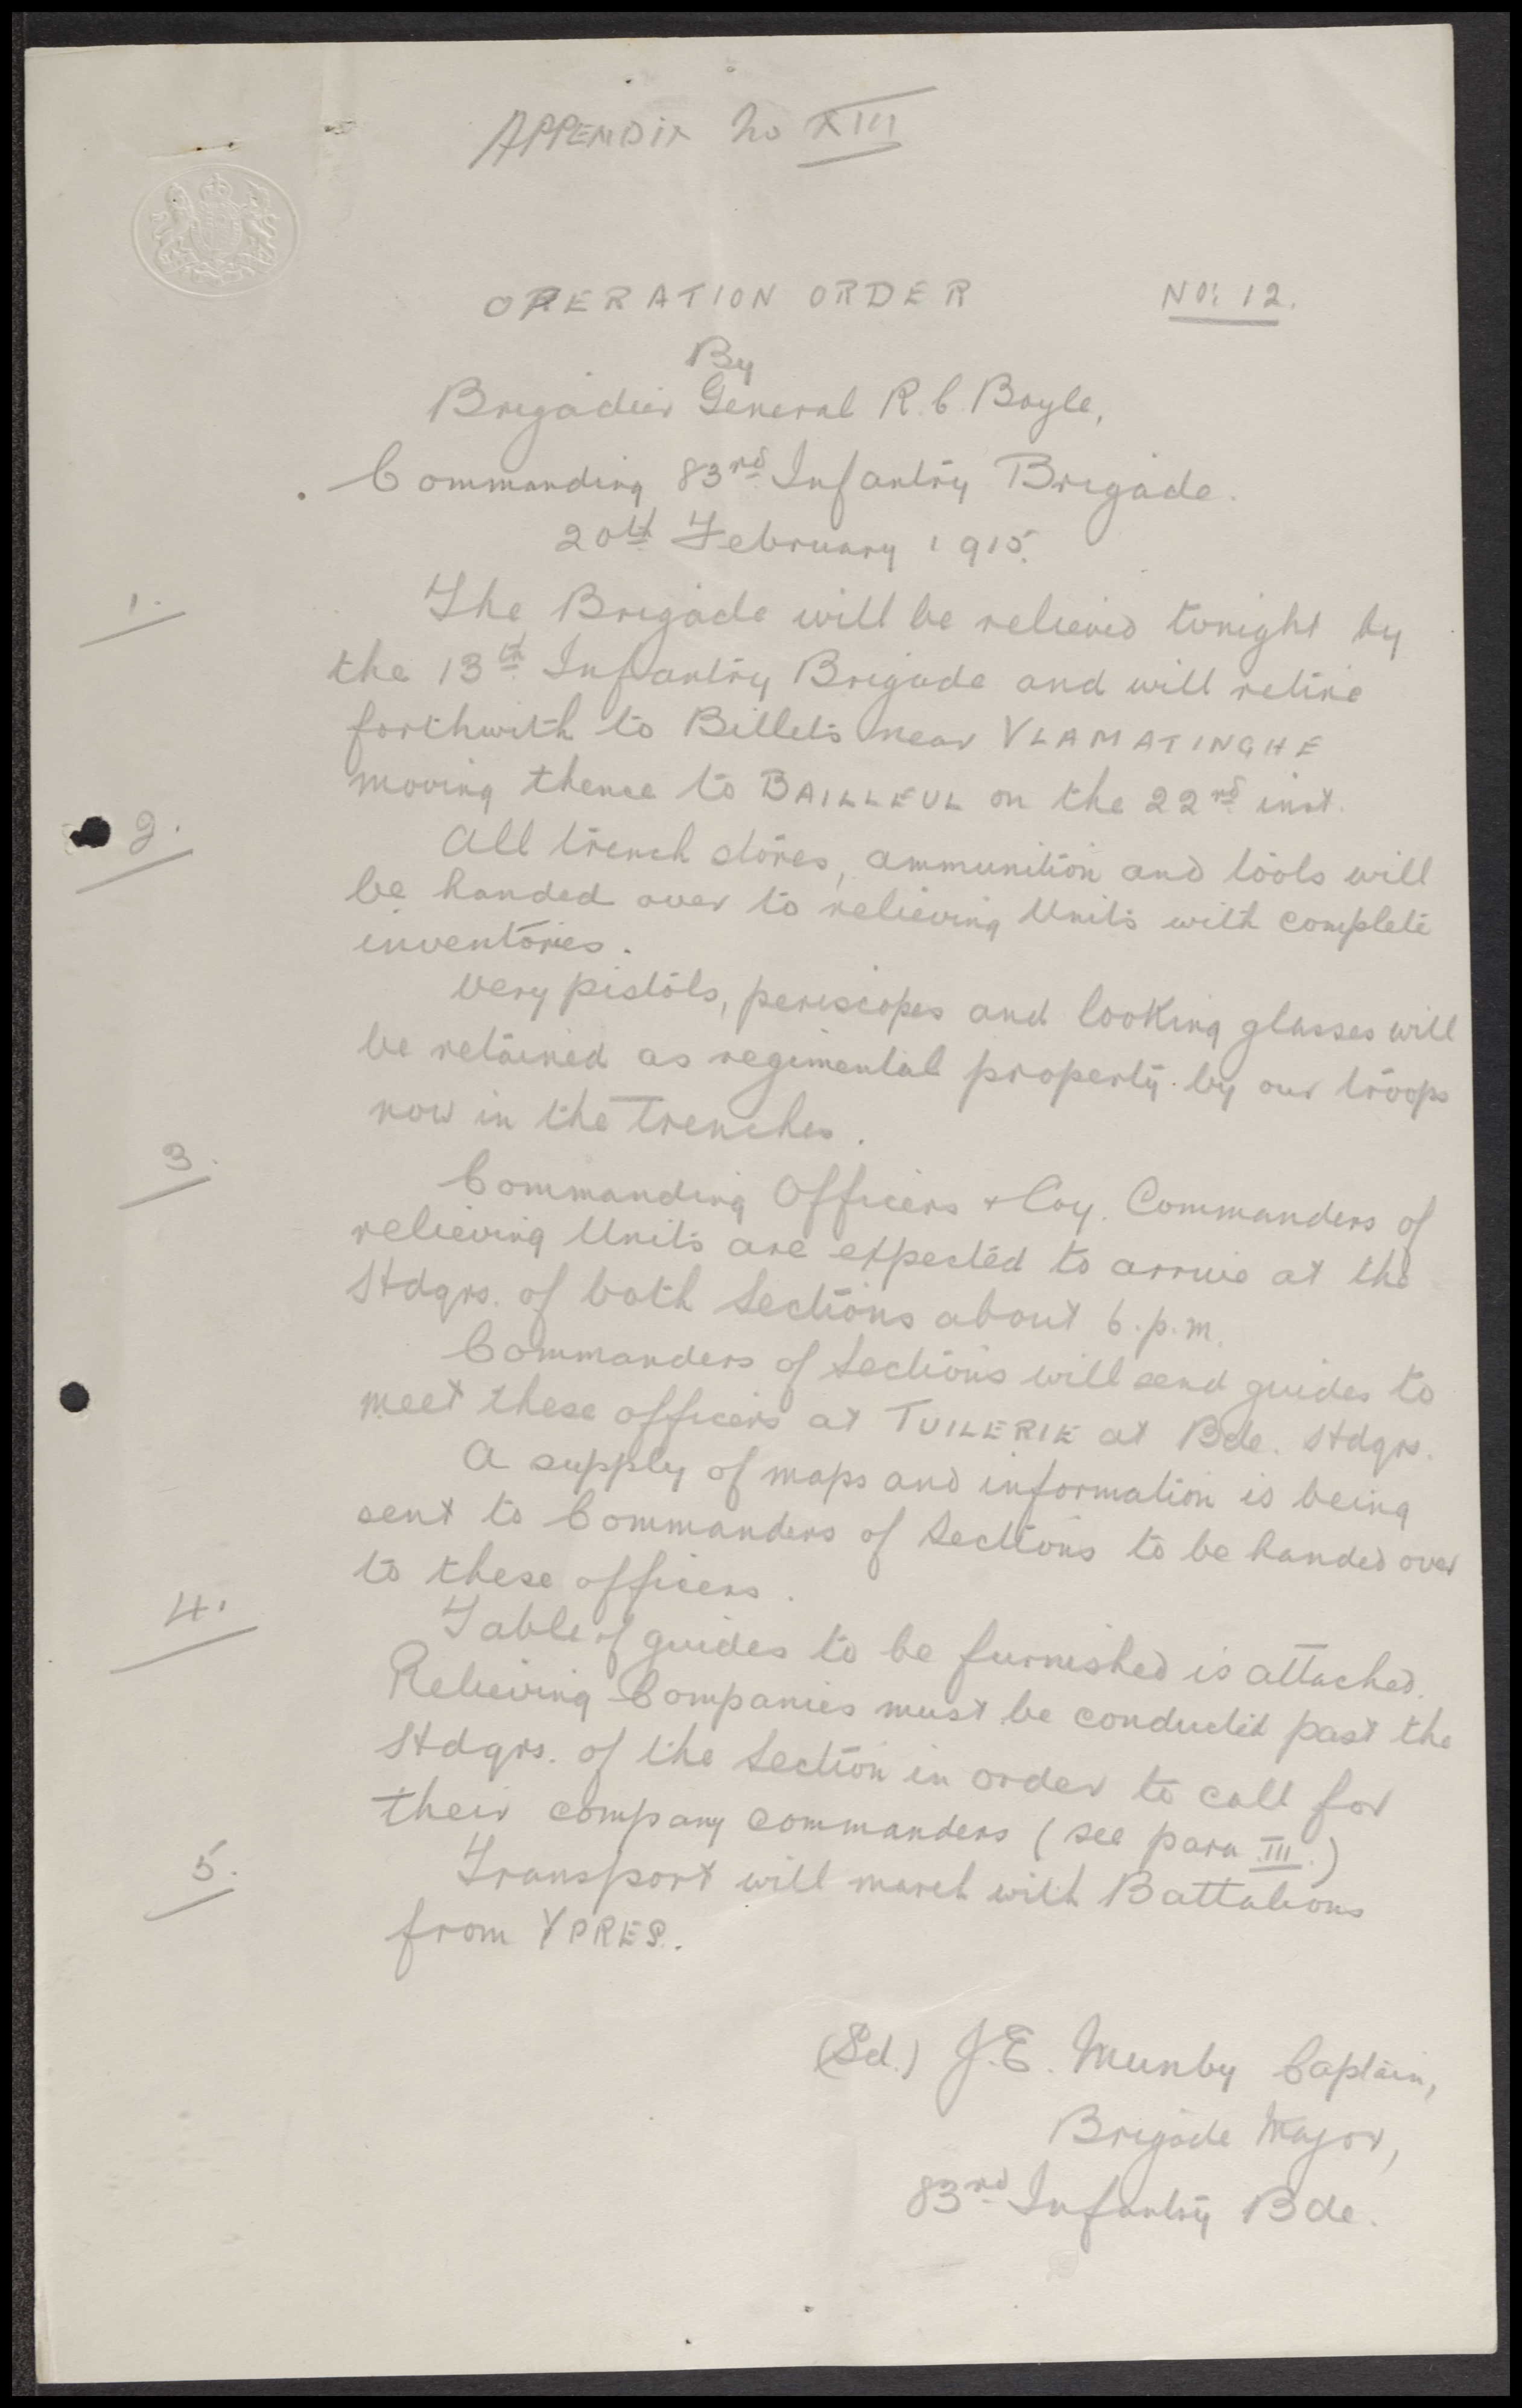 APPENDIX No XIII
OPERATION ORDER NO: 12.
By
Brigadier General R. C. Boyle,
Commanding 83rd Infantry Brigade.
20th February 1915.
1. The Brigade will be relieved tonight by
the 13th Infantry Brigade and will retire
forthwith to Billets near VLAMATINGHE
moving thence to BAILLEUL on the 22nd inst.
2. All trench stores, ammunition and tools will
be handed over to relieving Units with complete
inventories.
Very pistols, periscopes and looking glasses will
be retained as regimental property by our troops
now in the Trenches.
3. Commanding Officers & Coy. Commanders of
relieving Units are expected to arrive at the
Hdqrs. of both Sections about 6.p.m.
Commanders of Sections will send guides to
meet these officers at TUILERIE at Bde. Hdqrs.
A supply of maps and information is being
sent to Commanders of Sections to be handed over
to these officers.
4. Table of guides to be furnished is attached.
Relieving Companies must be conducted past the
Hdqrs. of the Section in order to call for
their company commanders (see para III.)
5. Transport will march with Battalions
from YPRES.
(Sd.) J.E. Munby Captain,
Brigade Major,
83rd Infantry Bde.